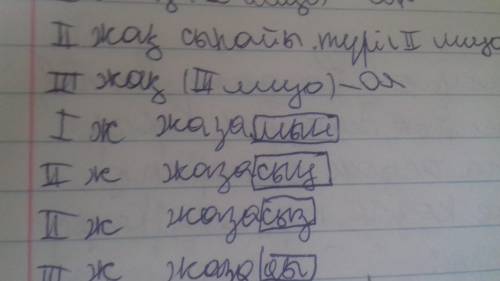 II жақ сыпайы түрі II лицо
III жақ (III лицо) – ол
I ж жазамын
II ж жазасың
II ж жазасыз
III ж жазады